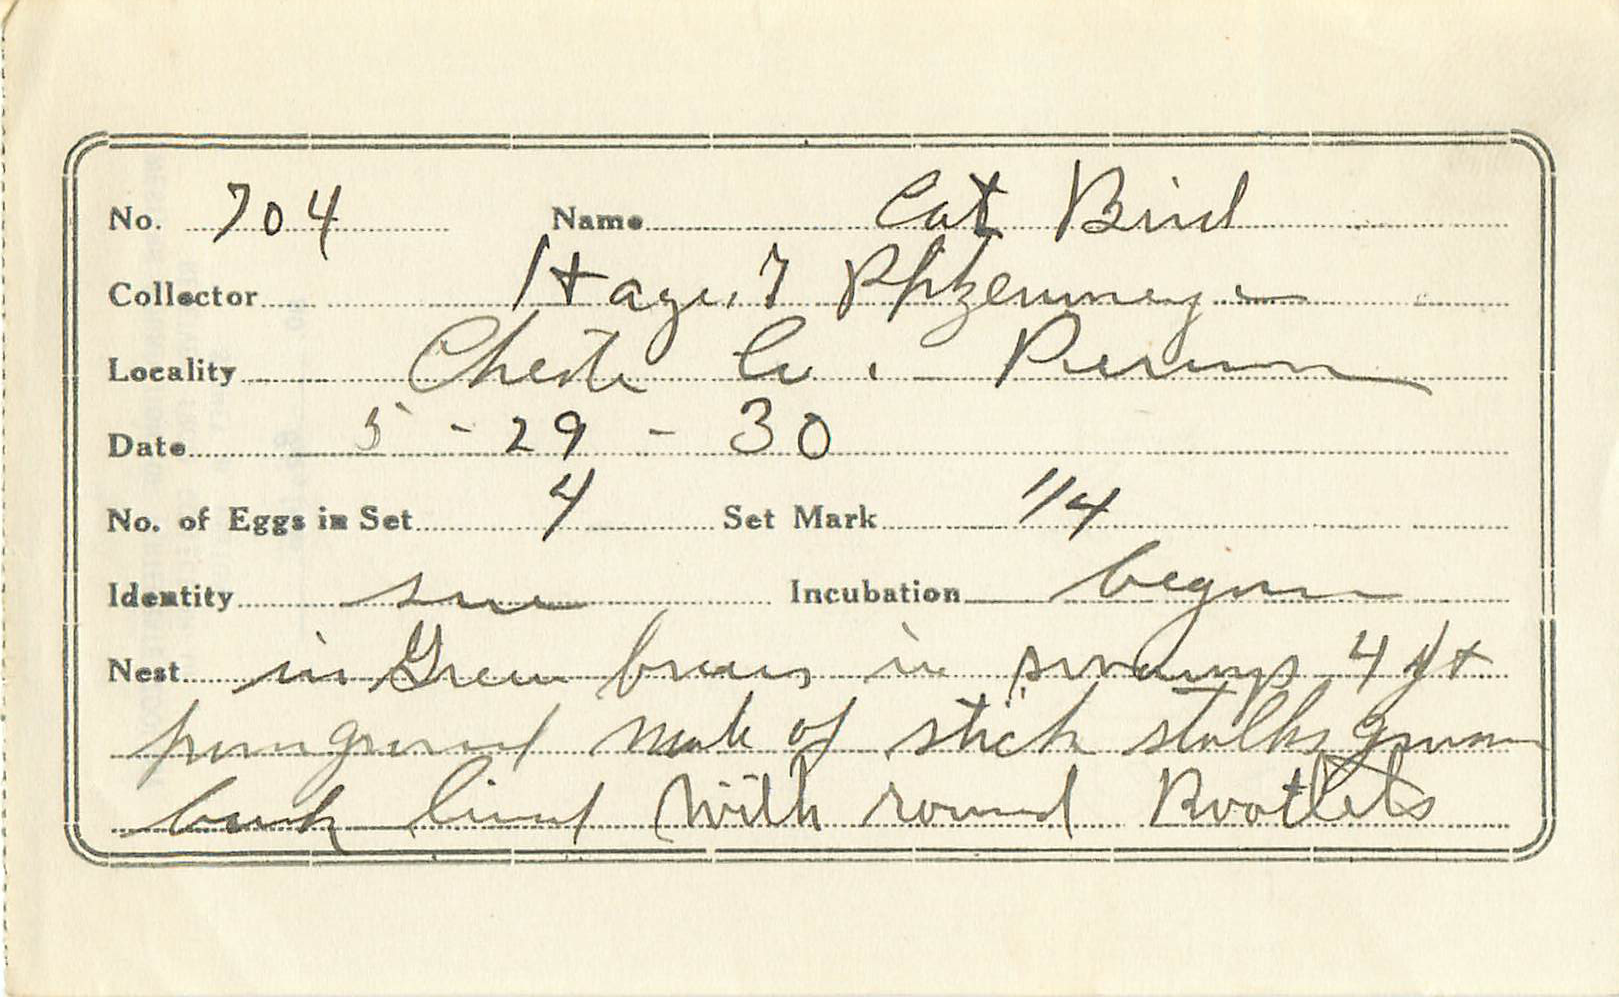 No. 704 Name Cat Bird
Collector
Locality Co.
Date 5 - 29 - 30
No. of Eggs in Set 4 Set Mark 1/4
Identity Incubation begun
Nest in Green briars in swamp 4 ft
made of stick stalks
lined with round Rootlets